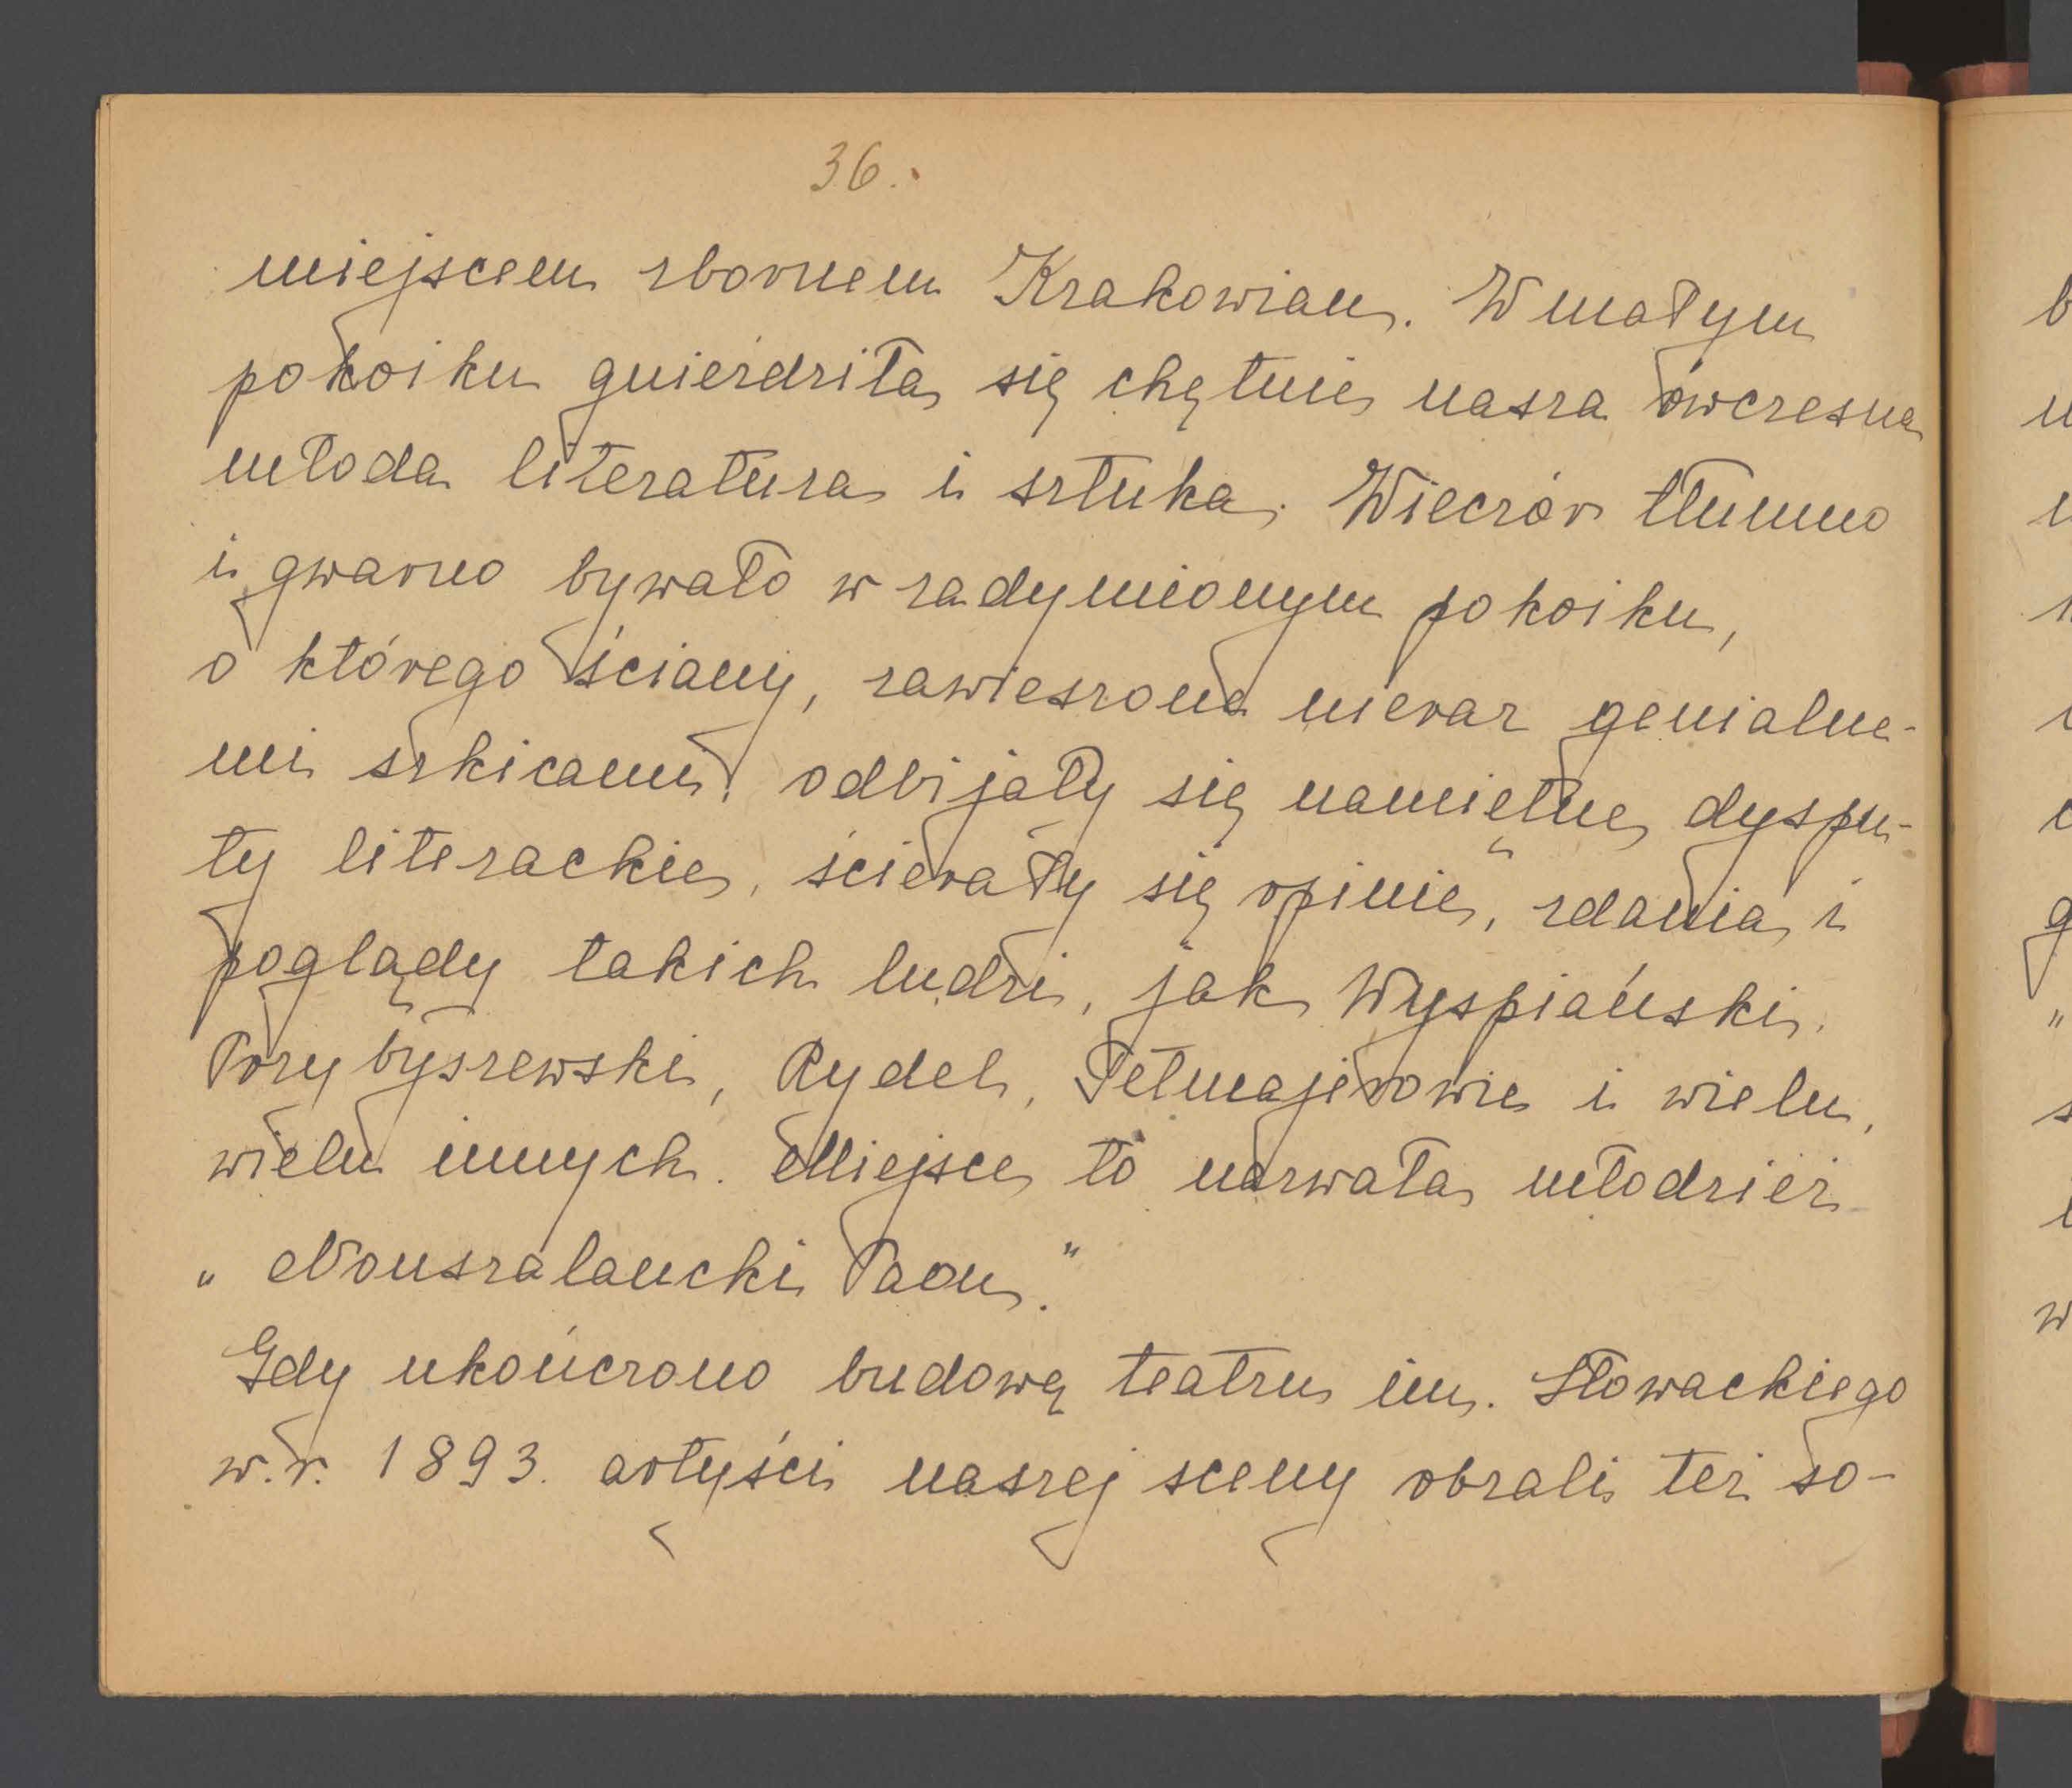 36.
miejscem zbornem Krakowian. W małym
pokoiku gnieździła się chętnie nasza ówczesna
młoda literatura i sztuka. Wieczór tłumno
i gwarno bywało w zadymionym pokoiku,
o którego ściany, zawieszone nieraz genialne-
mi szkicami, odbijały się namiętne dyspu-
ty literackie, ścierały się opinie, zdania i
poglądy takich ludzi, jak Wyspiański,
Przybyszewski, Rydel, Tetmajerowie i wielu,
wielu innych. Miejsce to nazwała młodzież
„Nonszalancki Paon."
Gdy ukończono budowę teatru im. Słowackiego
w.r. 1893. artyści naszej sceny obrali też so-